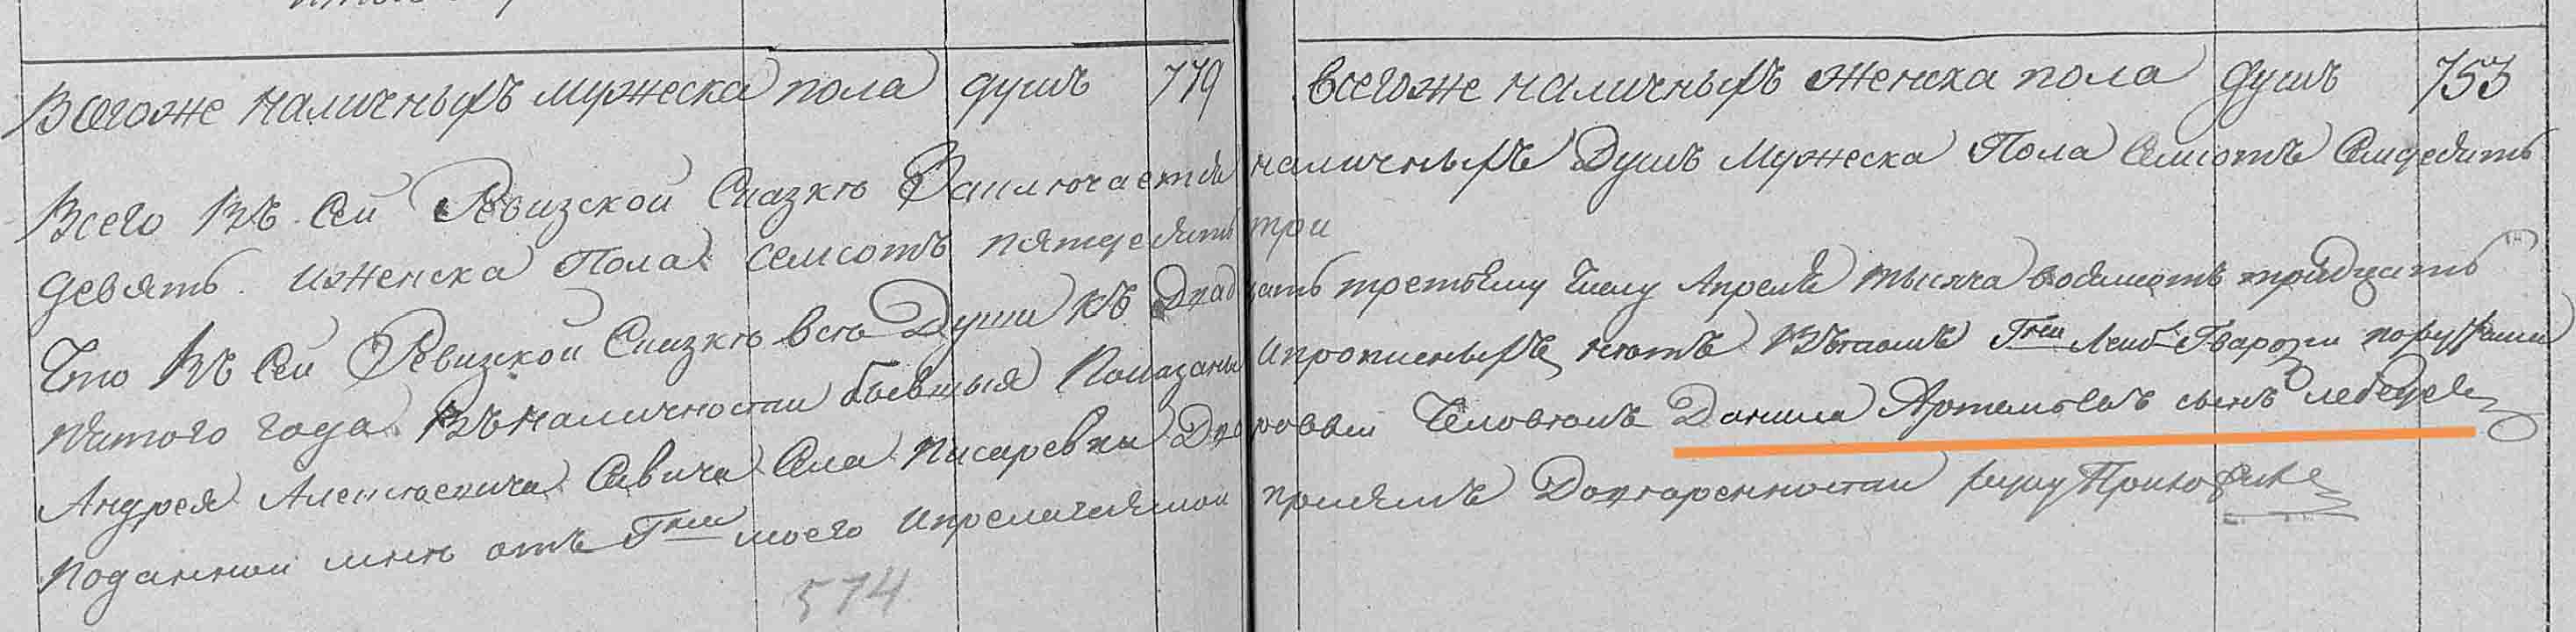 Всегоже наличныхъ мужеска пола душъ 779 всегоже наличныхъ женска пола душъ 753
Всего Въ Сей Ревизской Сказкѣ Заключается наличныхъ Душъ Мужеска Пола Семсотъ Семдесятъ
девять. иженска Пола семсотъ пятдесятъ три
Что Въ Сей Ревизкой Сказкѣ всѣ Души къ Двадцать третьему Числу Апреля тысяча восемсотъ тридцать
пятого года Въналичностии бывшыя Показаны ипрописныхъ нетъ Вътомъ Гна Лейб Гвардзи
Андрея Алексѣевича Савича Села Писаревки Дворовый Человѣкъ Данила Артемьевъ сынъ лебедев
Поданной мнѣ отъ Гна моего доверенностии руку Приложилъ
574